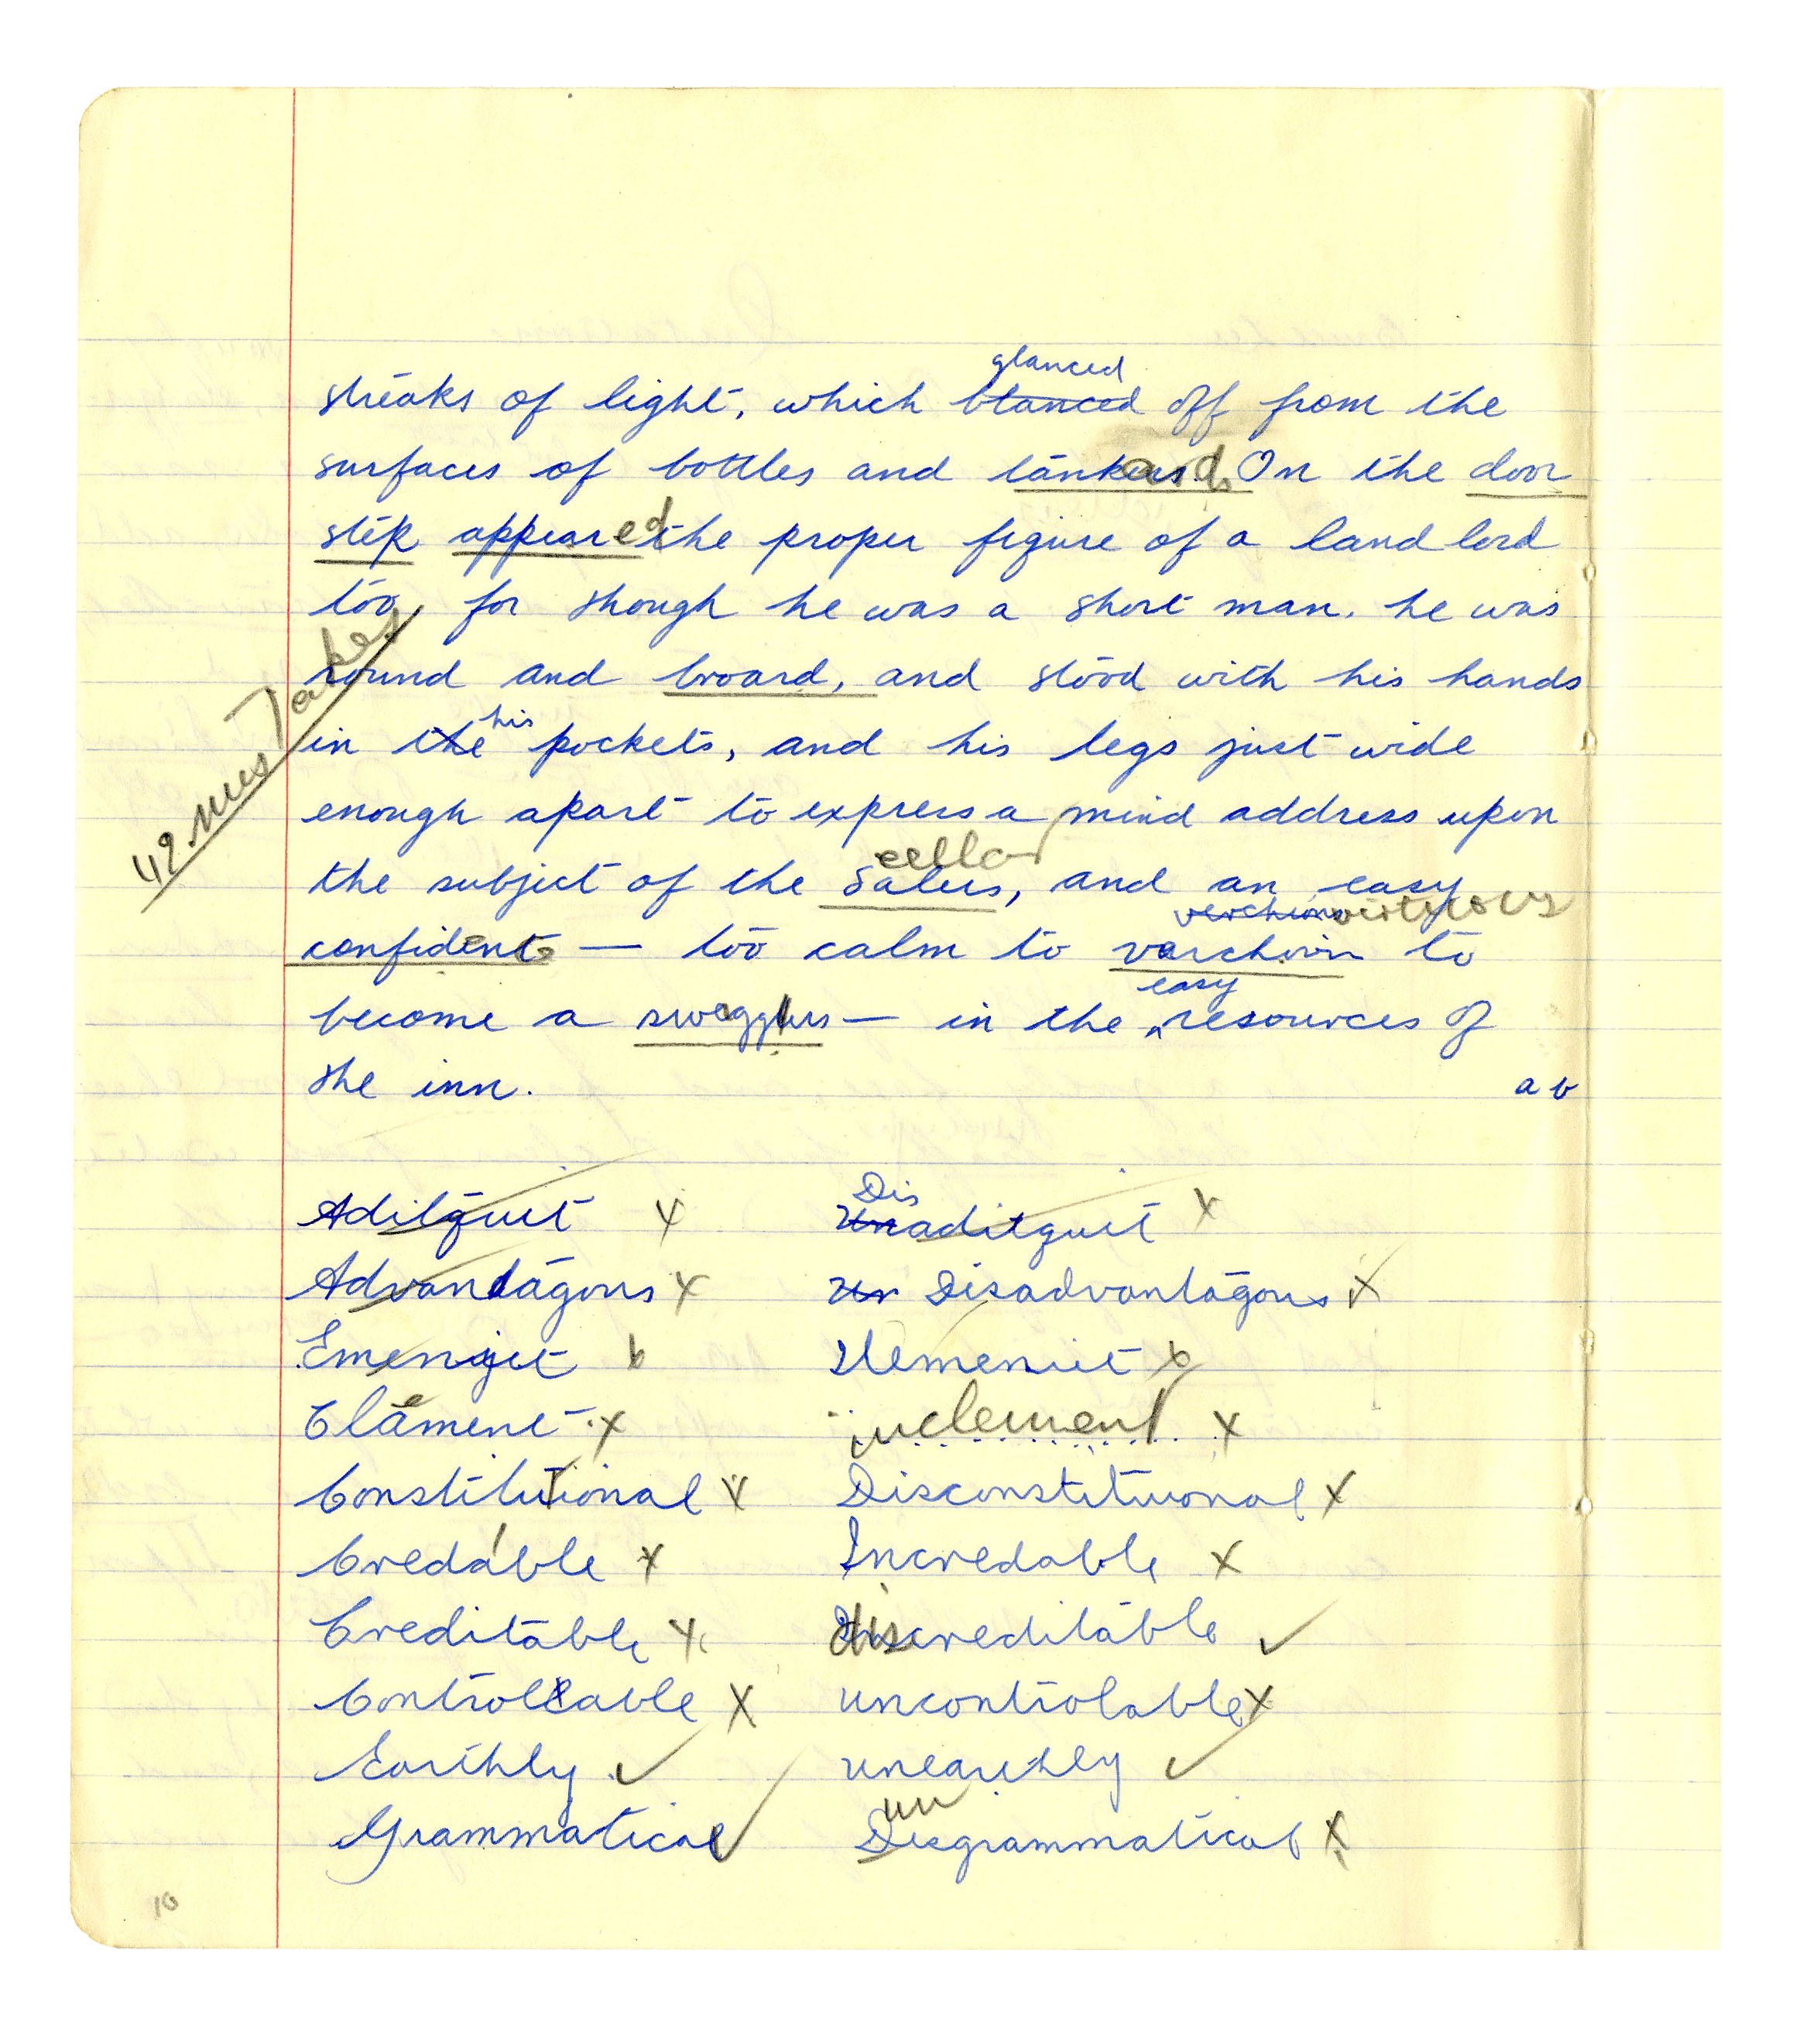 glanced
streaks of light, which blanced off from the
surfaces of bottles and tankards. On the door
step appeared the proper figure of a land lord
too, for though he was a short man. he was
round and broard, and stood with his hands
his
in the pockets, and his legs just wide
enough apart to express a mind address upon
cellar
the subject of the salers, and an easy
virtuous
confidence — too calm to varchoin to
easy
become a swagglers — in the resources of
the inn.
a b
42 mistakes
Dis
Aditquit x Unaditquit x
Advantagous x Un Disadvantagous x
Emenjiet b Unemeniet b
Clement x inclement x
Constitutional x Disconstituional x
Credable x Incredable x
Creditable x discreditable ✓
Controllable x uncontrolable x
Earthly ✓ unearthly ✓
un
Grammatical ✓ Disgrammatical x
10